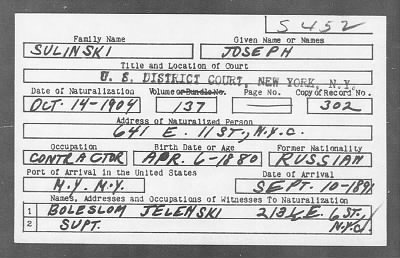 S 452
Family Name Given Name or Names
SULINSKI JOSEPH
Title and Location of Court
U. S. DISTRICT COURT, NEW YORK, N. Y.
Date of Naturalization Volume or Bundle No. Page No. Copy of Record No.
OCT. 14-1904 137 — 302
Address of Naturalized Person
641 E. 11 ST., N.Y.C.
Occupation Birth Date or Age Former Nationality
CONTRACTOR APR. 6-1880 RUSSIAN
Port of Arrival in the United States Date of Arrival
N.Y. N.Y. SEPT. 10-1891
Names, Addresses and Occupations of Witnesses To Naturalization
1 BOLESLOM JELENSKI E. 6 ST.,
2 SUPT. N.Y.C.